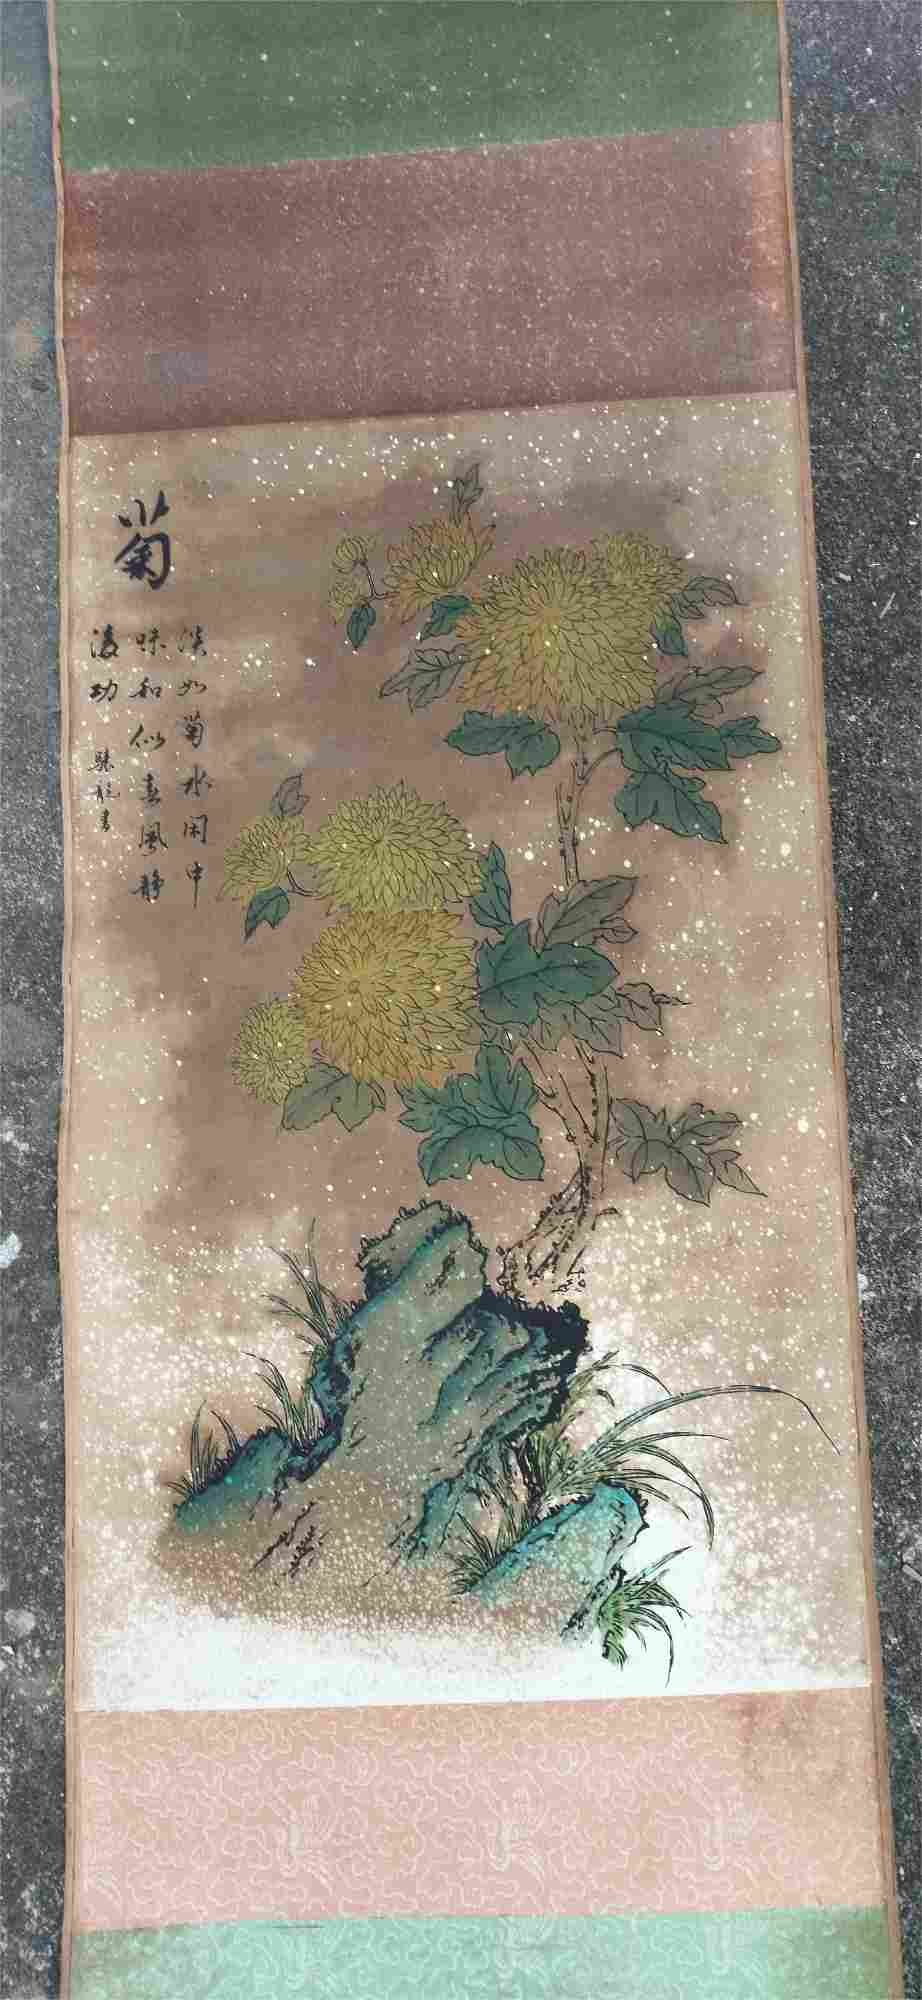 菊
淡如菊水闲中
味和似春风静
後功